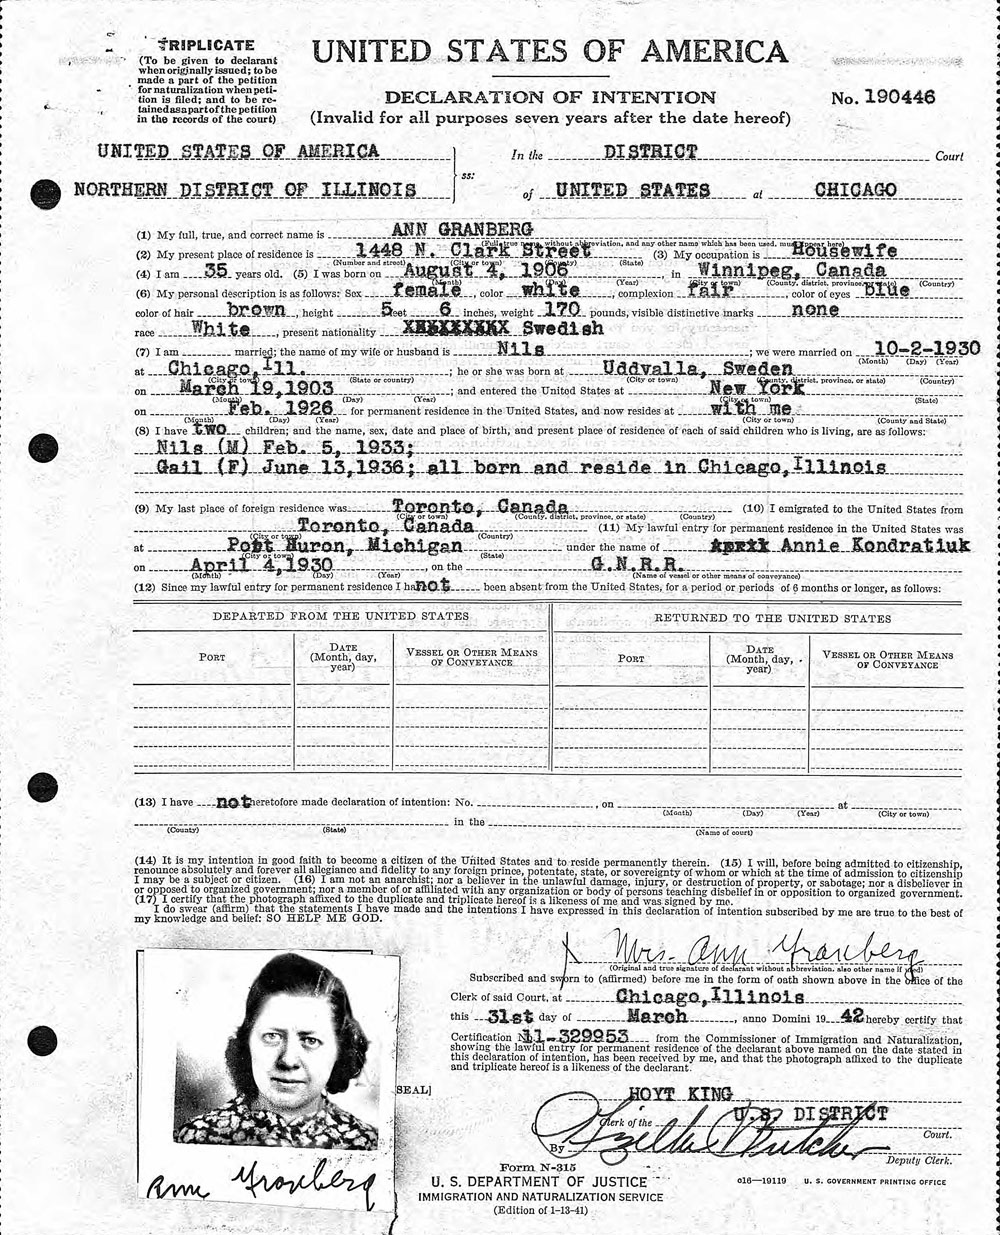 TRIPLICATE
(To be given to declarant
when originally issued; to be
made a part of the petition
for naturalization when peti-
tion is filed; and to be re-
tained as a part of the petition
in the records of the court)
UNITED STATES OF AMERICA
DECLARATION OF INTENTION
(Invalid for all purposes seven years after the date hereof)
No. 190446
UNITED STATES OF AMERICA
NORTHERN DISTRICT OF ILLINOIS
ss:
In the DISTRICT Court
of UNITED STATES at CHICAGO
(1) My full, true, and correct name is ANN GRANBERG
(Full, true name, without abbreviation, and any other name which has been used, must appear here)
(2) My present place of residence is 1448 N. Clark Street (3) My occupation is Housewife
(Number and street) (City or town) (County) (State)
(4) I am 35 years old. (5) I was born on August 4, 1906 in Winnipeg, Canada
(Month) (Day) (Year) (City or town) (County, district, province, or state) (Country)
(6) My personal description is as follows: Sex female, color white, complexion fair, color of eyes blue
color of hair brown, height 5 feet 6 inches, weight 170 pounds, visible distinctive marks none
race White, present nationality Swedish
(7) I am married; the name of my wife or husband is Nils; we were married on 10-2-1930
(Month) (Day) (Year)
at Chicago, Ill.; he or she was born at Uddvalla, Sweden
(City or town) (State or country) (City or town) (County, district, province, or state) (Country)
on March 19, 1903; and entered the United States at New York
(Month) (Day) (Year) (City or town) (State)
on Feb. 1926 for permanent residence in the United States, and now resides at with me
(Month) (Day) (Year) (City or town) (County and State)
(8) I have two children; and the name, sex, date and place of birth, and present place of residence of each of said children who is living, are as follows:
Nils (M) Feb. 5, 1933;
Gail (F) June 13, 1936; all born and reside in Chicago, Illinois
(9) My last place of foreign residence was Toronto, Canada (10) I emigrated to the United States from
(City or town) (County, district, province, or state) (Country)
Toronto, Canada (11) My lawful entry for permanent residence in the United States was
(City or town) (Country)
at Port Huron, Michigan under the name of April Annie Kondratiuk
(City or town) (State)
on April 4, 1930, on the G.N.R.R.
(Month) (Day) (Year) (Name of vessel or other means of conveyance)
(12) Since my lawful entry for permanent residence I ha not been absent from the United States, for a period or periods of 6 months or longer, as follows:
DEPARTED FROM THE UNITED STATES RETURNED TO THE UNITED STATES
PORT DATE (Month, day, year) VESSEL OR OTHER MEANS OF CONVEYANCE PORT DATE (Month, day, year) VESSEL OR OTHER MEANS OF CONVEYANCE
(13) I have not heretofore made declaration of intention: No. , on at
(Month) (Day) (Year) (City or town)
in the
(County) (State) (Name of court)
(14) It is my intention in good faith to become a citizen of the United States and to reside permanently therein. (15) I will, before being admitted to citizenship,
renounce absolutely and forever all allegiance and fidelity to any foreign prince, potentate, state, or sovereignty of whom or which at the time of admission to citizenship
I may be a subject or citizen. (16) I am not an anarchist; nor a believer in the unlawful damage, injury, or destruction of property, or sabotage; nor a disbeliever in
or opposed to organized government; nor a member of or affiliated with any organization or body of persons teaching disbelief in or opposition to organized government.
(17) I certify that the photograph affixed to the duplicate and triplicate hereof is a likeness of me and was signed by me.
I do swear (affirm) that the statements I have made and the intentions I have expressed in this declaration of intention subscribed by me are true to the best of
my knowledge and belief: SO HELP ME GOD.
Mrs. Ann Granberg
(Original and true signature of declarant without abbreviation, also other name if used)
Subscribed and sworn to (affirmed) before me in the form of oath shown above in the office of the
Clerk of said Court, at Chicago, Illinois
this 31st day of March, anno Domini 1942 hereby certify that
Certification No. 11-329953 from the Commissioner of Immigration and Naturalization,
showing the lawful entry for permanent residence of the declarant above named on the date stated in
this declaration of intention, has been received by me, and that the photograph affixed to the duplicate
and triplicate hereof is a likeness of the declarant.
SEAL]
HOYT KING
Clerk of the U.S DISTRICT Court.
By Deputy Clerk.
Ann Granberg
Form N-315
U. S. DEPARTMENT OF JUSTICE
IMMIGRATION AND NATURALIZATION SERVICE
(Edition of 1-13-41)
o16—19119 U. S. GOVERNMENT PRINTING OFFICE